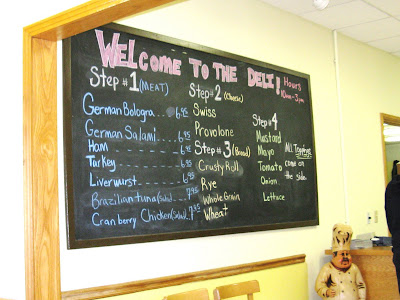 Welcome to the Deli!
Hours
10am-3pm
Step #1 (MEAT)
German Bologna 6.95
German Salami 6.95
Ham 6.95
Turkey 6.95
Liverwurst 6.95
Brazilian tuna (Salad) 7.95
Cranberry Chicken (Salad) 7.95
Step #2 (Cheese)
Swiss
Provolone
Step #3 (Bread)
Crusty Roll
Rye
Whole Grain
Wheat
Step #4
Mustard
Mayo
Tomato
Onion
Lettuce
All Toppings
come on
the side